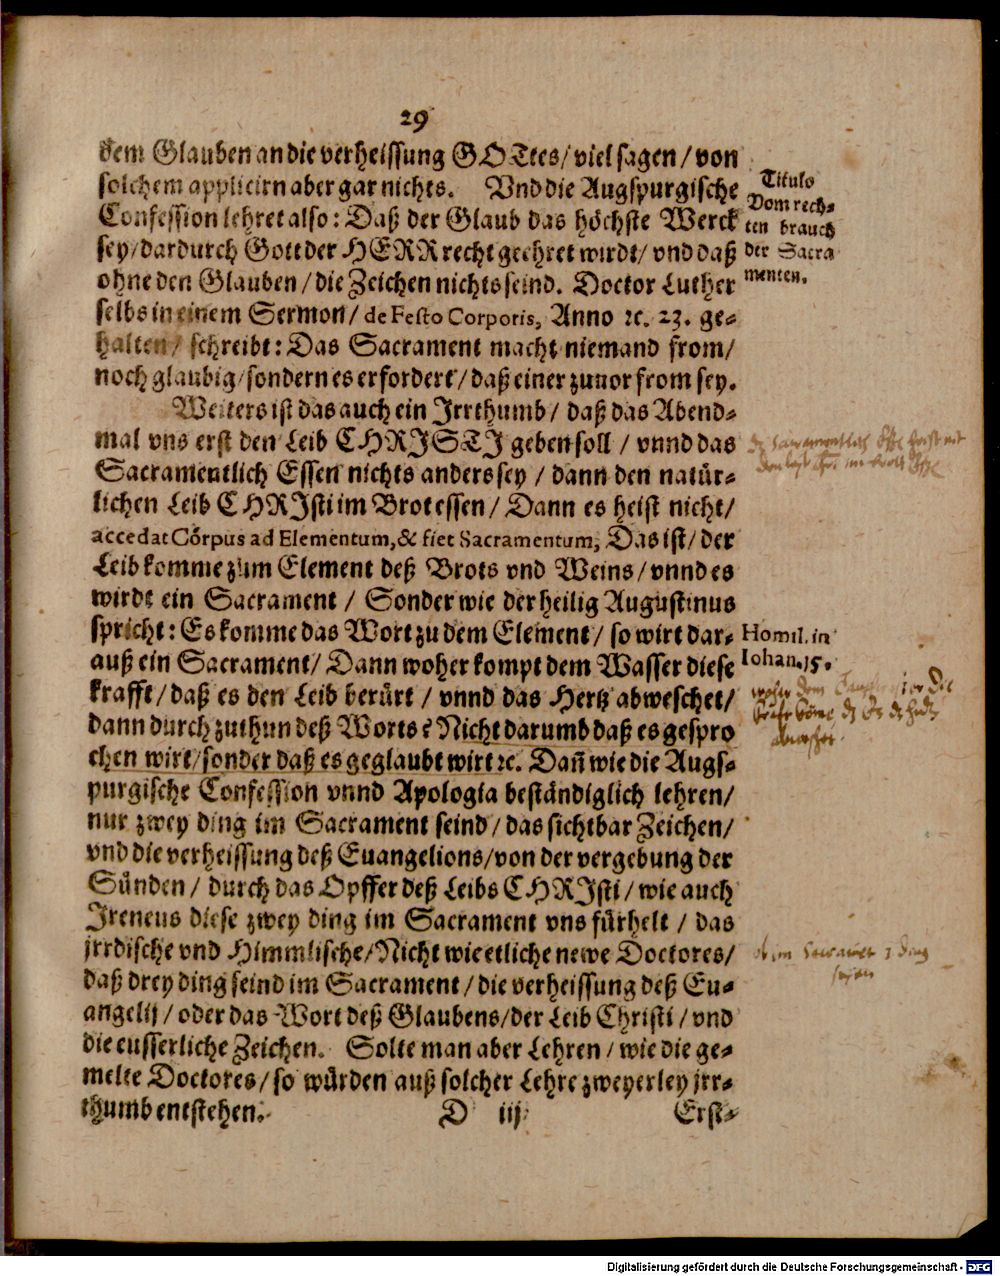 29
dem Glauben an die verheissung GOTtes/ viel sagen/ von
solchem applicirn aber gar nichts. Vnd die Augspurgische
Confession lehret also: Daß der Glaub das höchste Werck
sey/ dardurch Gott der HERR recht geehret wirdt/ vnd daß
ohne den Glauben/ die Zeichen nichts seind. Doctor Luther
selbs in einem Sermon/ de Festo Corporis, Anno ꝛc. 23. ge-
halten/ schreibt: Das Sacrament macht niemand from/
noch glaubig/ sondern es erfordert/ daß einer zuuor from sey.
Titulo
Vom rech-
ten brauch
der Sacra
menten.
Weiters ist das auch ein Irrthumb/ daß das Abend-
mal vns erst den Leib CHRISTI geben soll/ vnnd das
Sacramentlich Essen nichts anders sey/ dann den natür-
lichen Leib CHRIsti im Brot essen/ Dann es heist nicht/
accedat Córpus ad Elementum, & fiet Sacramentum, Das ist/ der
Leib komme zum Element deß Brots vnd Weins/ vnnd es
wirdt ein Sacrament/ Sonder wie der heilig Augustinus
spricht: Es komme das Wort zu dem Element/ so wirt dar-
auß ein Sacrament/ Dann woher kompt dem Wasser diese
krafft/ daß es den Leib berürt/ vnnd das Hertz abweschet/
dann durch zuthun deß Worts? Nicht darumb daß es gespro
chen wirt/ sonder daß es geglaubt wirt ꝛc. Dañ wie die Augs-
purgische Confession vnnd Apologia beständiglich lehren/
nur zwey ding im Sacrament seind/ das sichtbar Zeichen/
vnd die verheissung deß Euangelions/ von der vergebung der
Sünden/ durch das Opffer deß Leibs CHRIsti/ wie auch
Ireneus diese zwey ding im Sacrament vns fürhelt/ das
jrrdische vnd Himmlische/ Nicht wie etliche newe Doctores/
daß drey ding seind im Sacrament/ die verheissung deß Eu-
angelij/ oder das Wort deß Glaubens/ der Leib Christi/ vnd
die eusserliche Zeichen. Solte man aber Lehren/ wie die ge-
melte Doctores/ so würden auß solcher Lehre zweyerley jrr-
thumb entstehen.
Homil. in
Iohan. 15.
D iij
Erst-
Digitalisierung gefördert durch die Deutsche Forschungsgemeinschaft - DFG